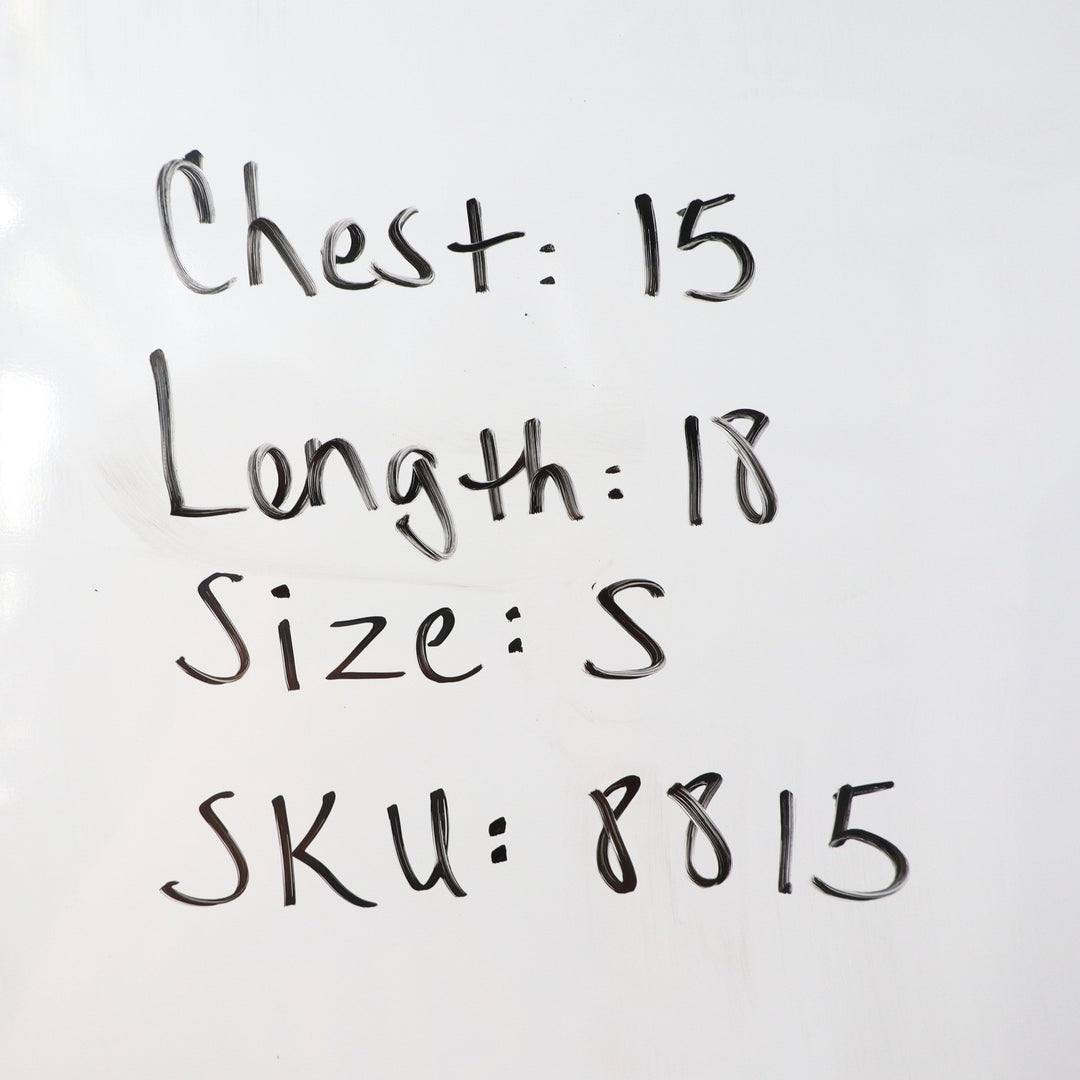 Chest: 15
Length: 18
Size: S
SKU: 8815